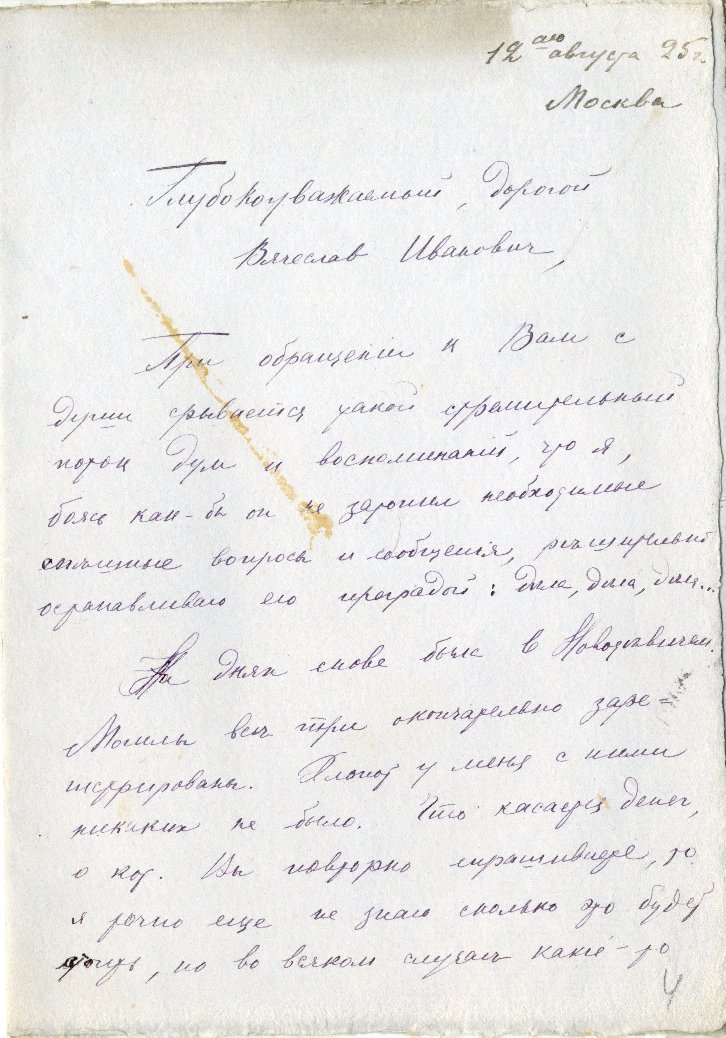 12ого августа 25г.
Москва
Глубокоуважаемый, дорогой
Вячеслав Иванович,
При обращеніи к Вам с
души срывается такой стремительный
поток дум и воспоминаній, что я,
боясь как-бы он не затопил необходимые
спѣшные вопросы и сообщенія, рѣшительно
останавливаю его преградой: дѣла, дѣла, дѣла...
На днях снова была в Новодѣвичьем.
Могилы всѣ три окончательно заре=
гистрированы. Хлопот у меня с ними
никаких не было. Что касается денег,
о кот. Вы повторно спрашиваете, то
я точно еще не знаю сколько это будет
стоить, но во всяком случаѣ какіе-то
4